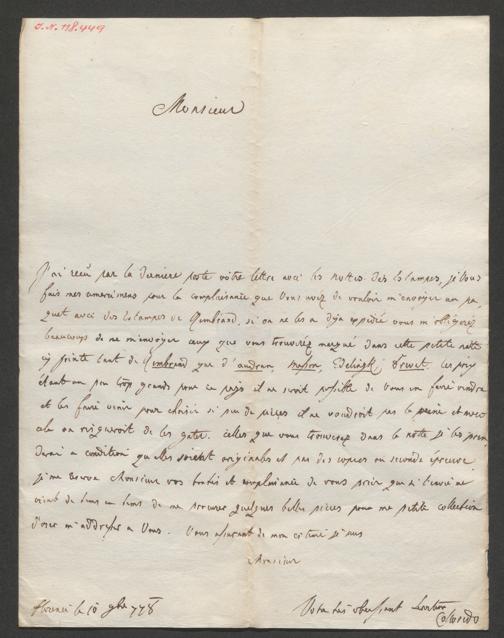 J.N. 118.449
Monsieur
J'ai reçu par la derniere poste vôtre lettre avec les nottes des Estampes, je Vous
fais mes remercimens pour la complaisance que Vous avez de vouloir m'envoyer un pa
quet avec des Estampes de Rembrand, si on ne les a deja expedié vous m'obligerez
beaucoup de ne m'envoyer ceux que vous trouverez marqué dans cette petite notte
cy jointe tant de Rembrand que d'audran, masson, Edelingk, Drevet. Les prix
etant un peu trop grands pour ce pays il ne seroit possible de vous en faire vendre
et les faire venir pour choisir si peu de pieces il ne voudroit pas la peine et avec
cela on risqueroit de les gater. Celles que vous trouverez dans la notte je les pren
derai a condition qu'elles soient originales et pas des copies ou seconde épreuve
je me Monsieur vos bontés et complaisance de vous prier que s'il
vient de tems en tems de me procurer quelques belles pieces pour ma petite collection
d'oser m'addresser a Vous. Vous assurant de mon estime je suis
Monsieur
florence le 10 gbre 778
Votre tres obeissant Serviteur